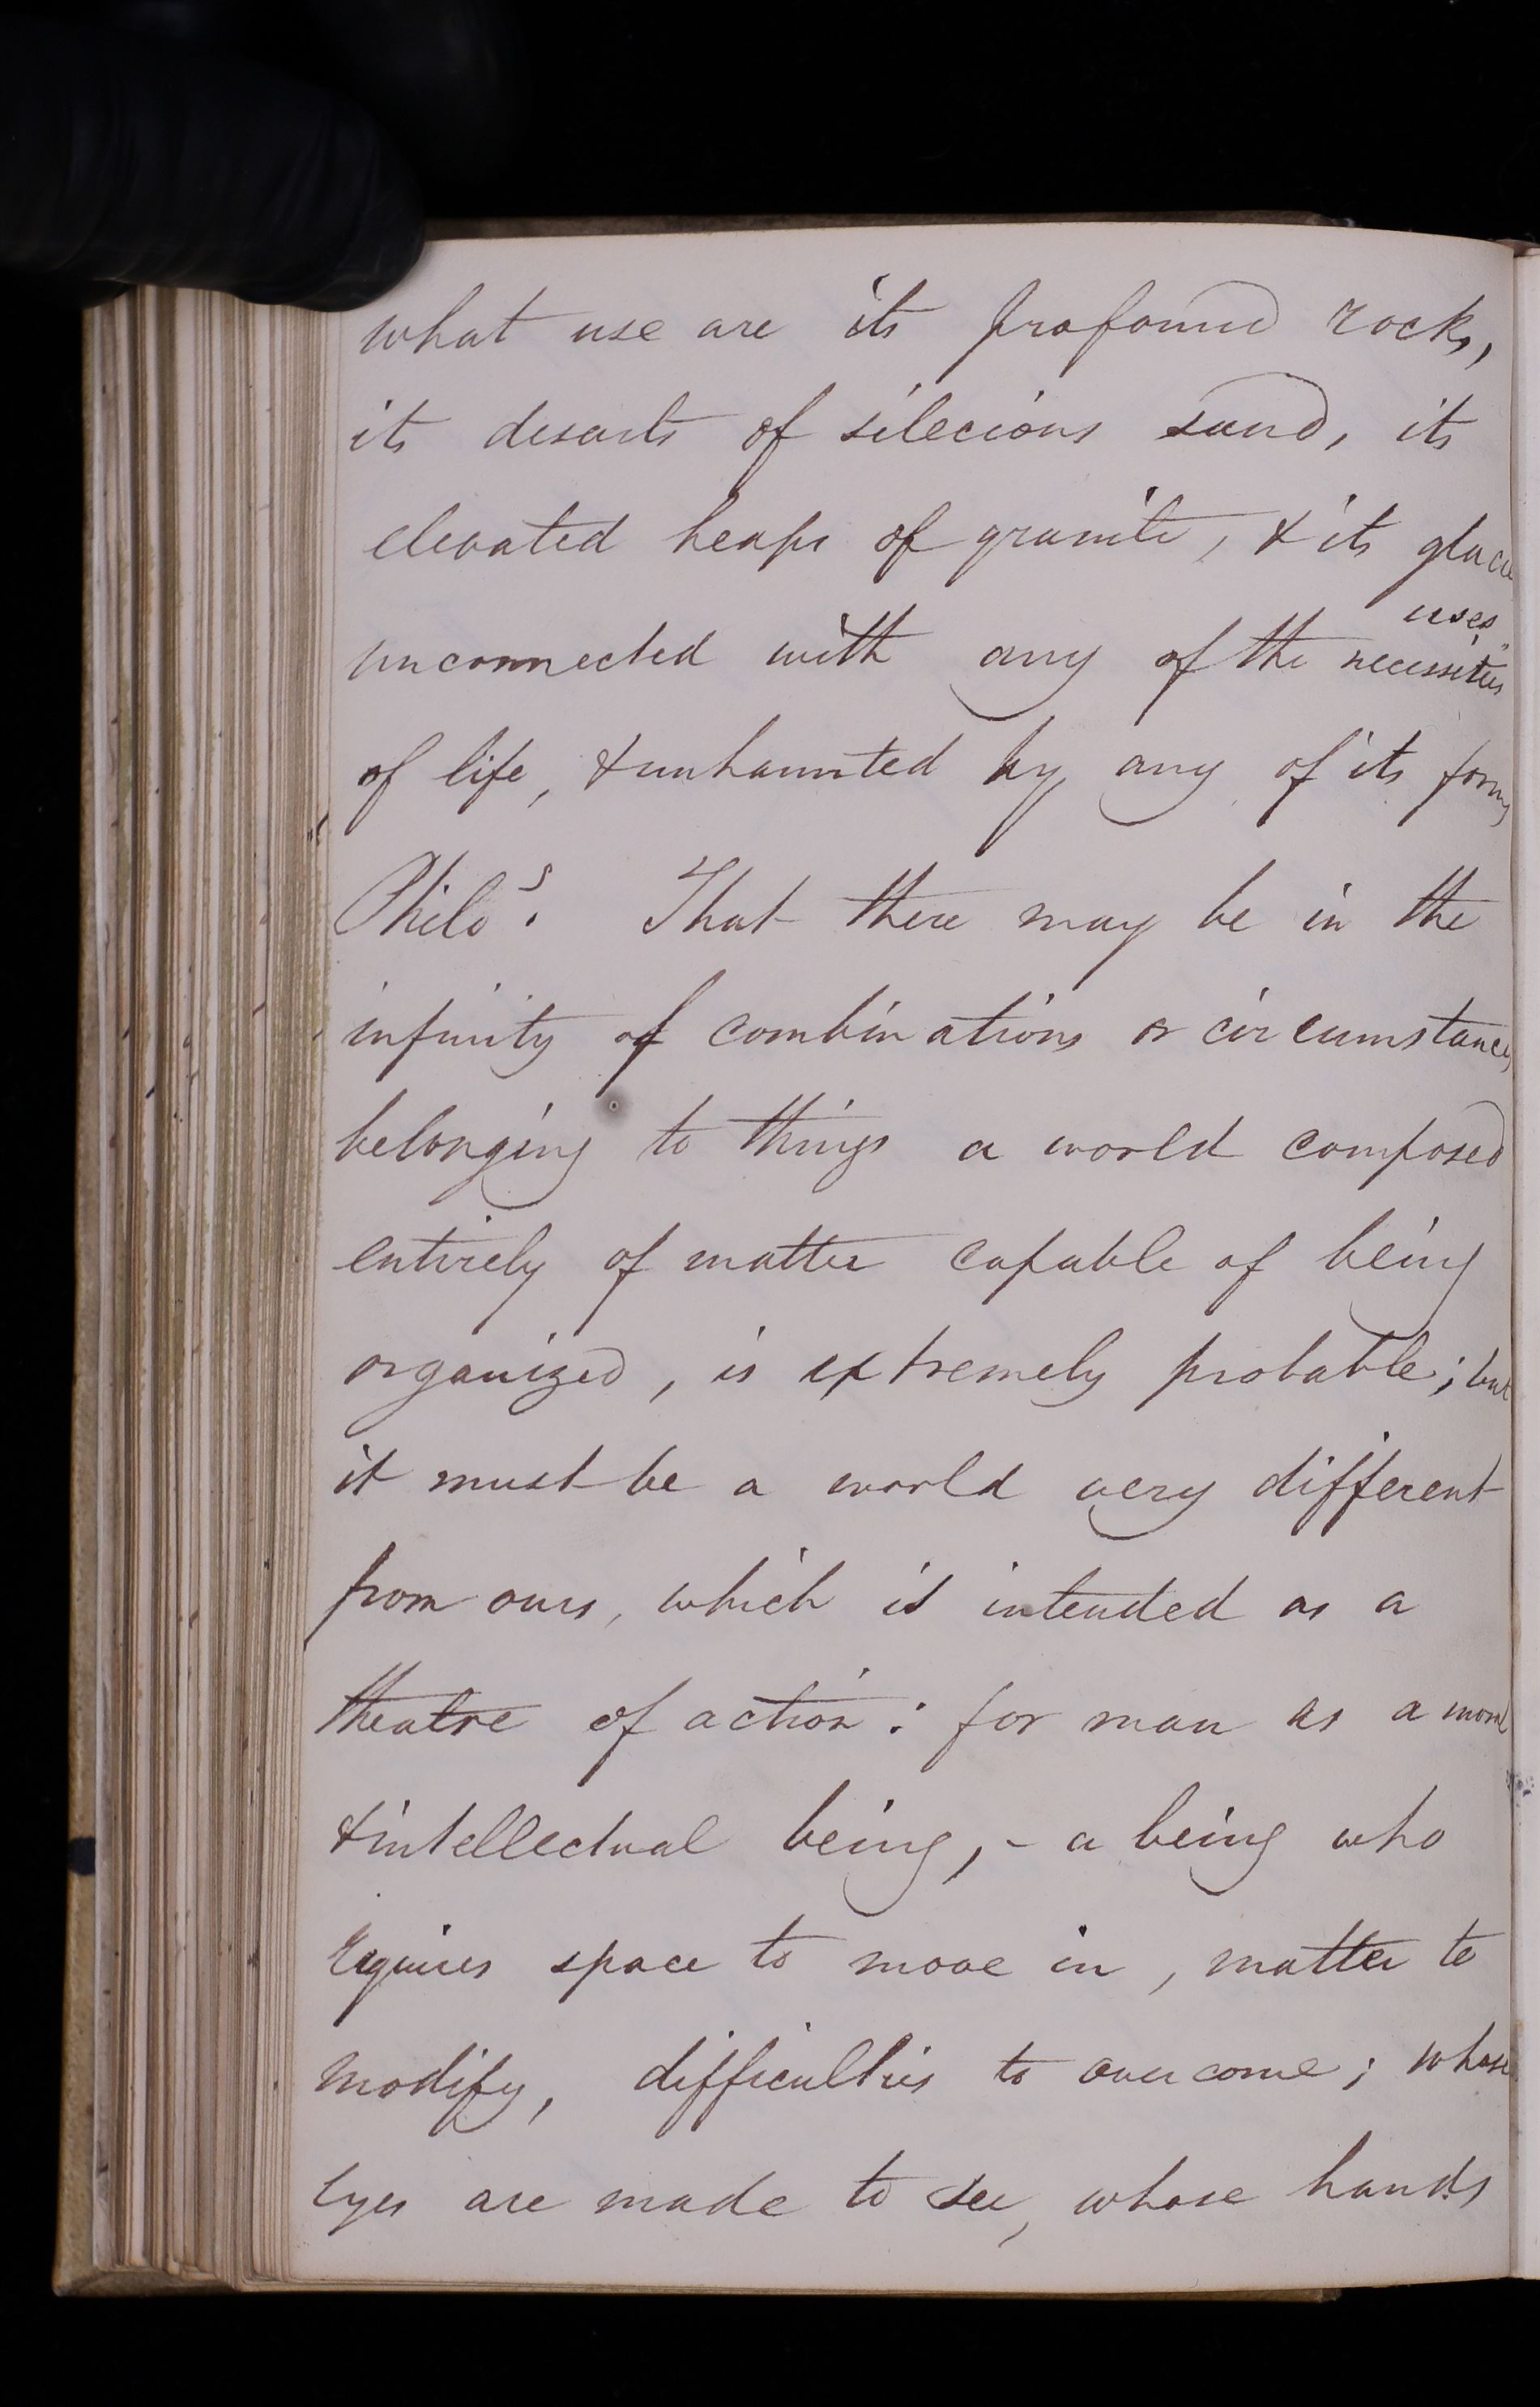 what use are its profound rocks,
its desarts of silecious sand, its
elevated heaps of granite, & its glacie
uses
unconnected with any of the necessities
of life, & unhaunted by any of its forms
Philos. That there may be in the
infinity of combinations or circumstances
belonging to things a world composed
entirely of matter capable of being
organized, is extremely probable; but
it must be a world very different
from ours, which is intended as a
theatre of action: for man as a moral
& intellectual being, - a being who
requires space to move in, matter to
modify, difficulties to overcome; whose
eyes are made to see, whose hands